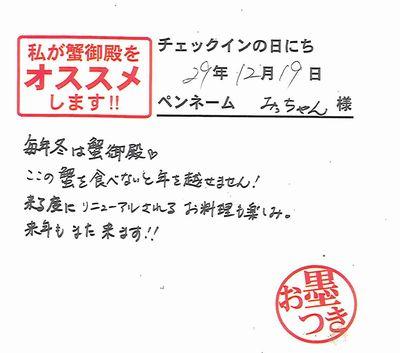 私が蟹御殿を
オススメ
します!!
チェックインの日にち
29年12月19日
ペンネーム みっちゃん 様
毎年冬は蟹御殿♡
ここの蟹を食べないと年を越せません!
来る度にリニューアルされるお料理も楽しみ。
来年もまた来ます!!
お墨つき